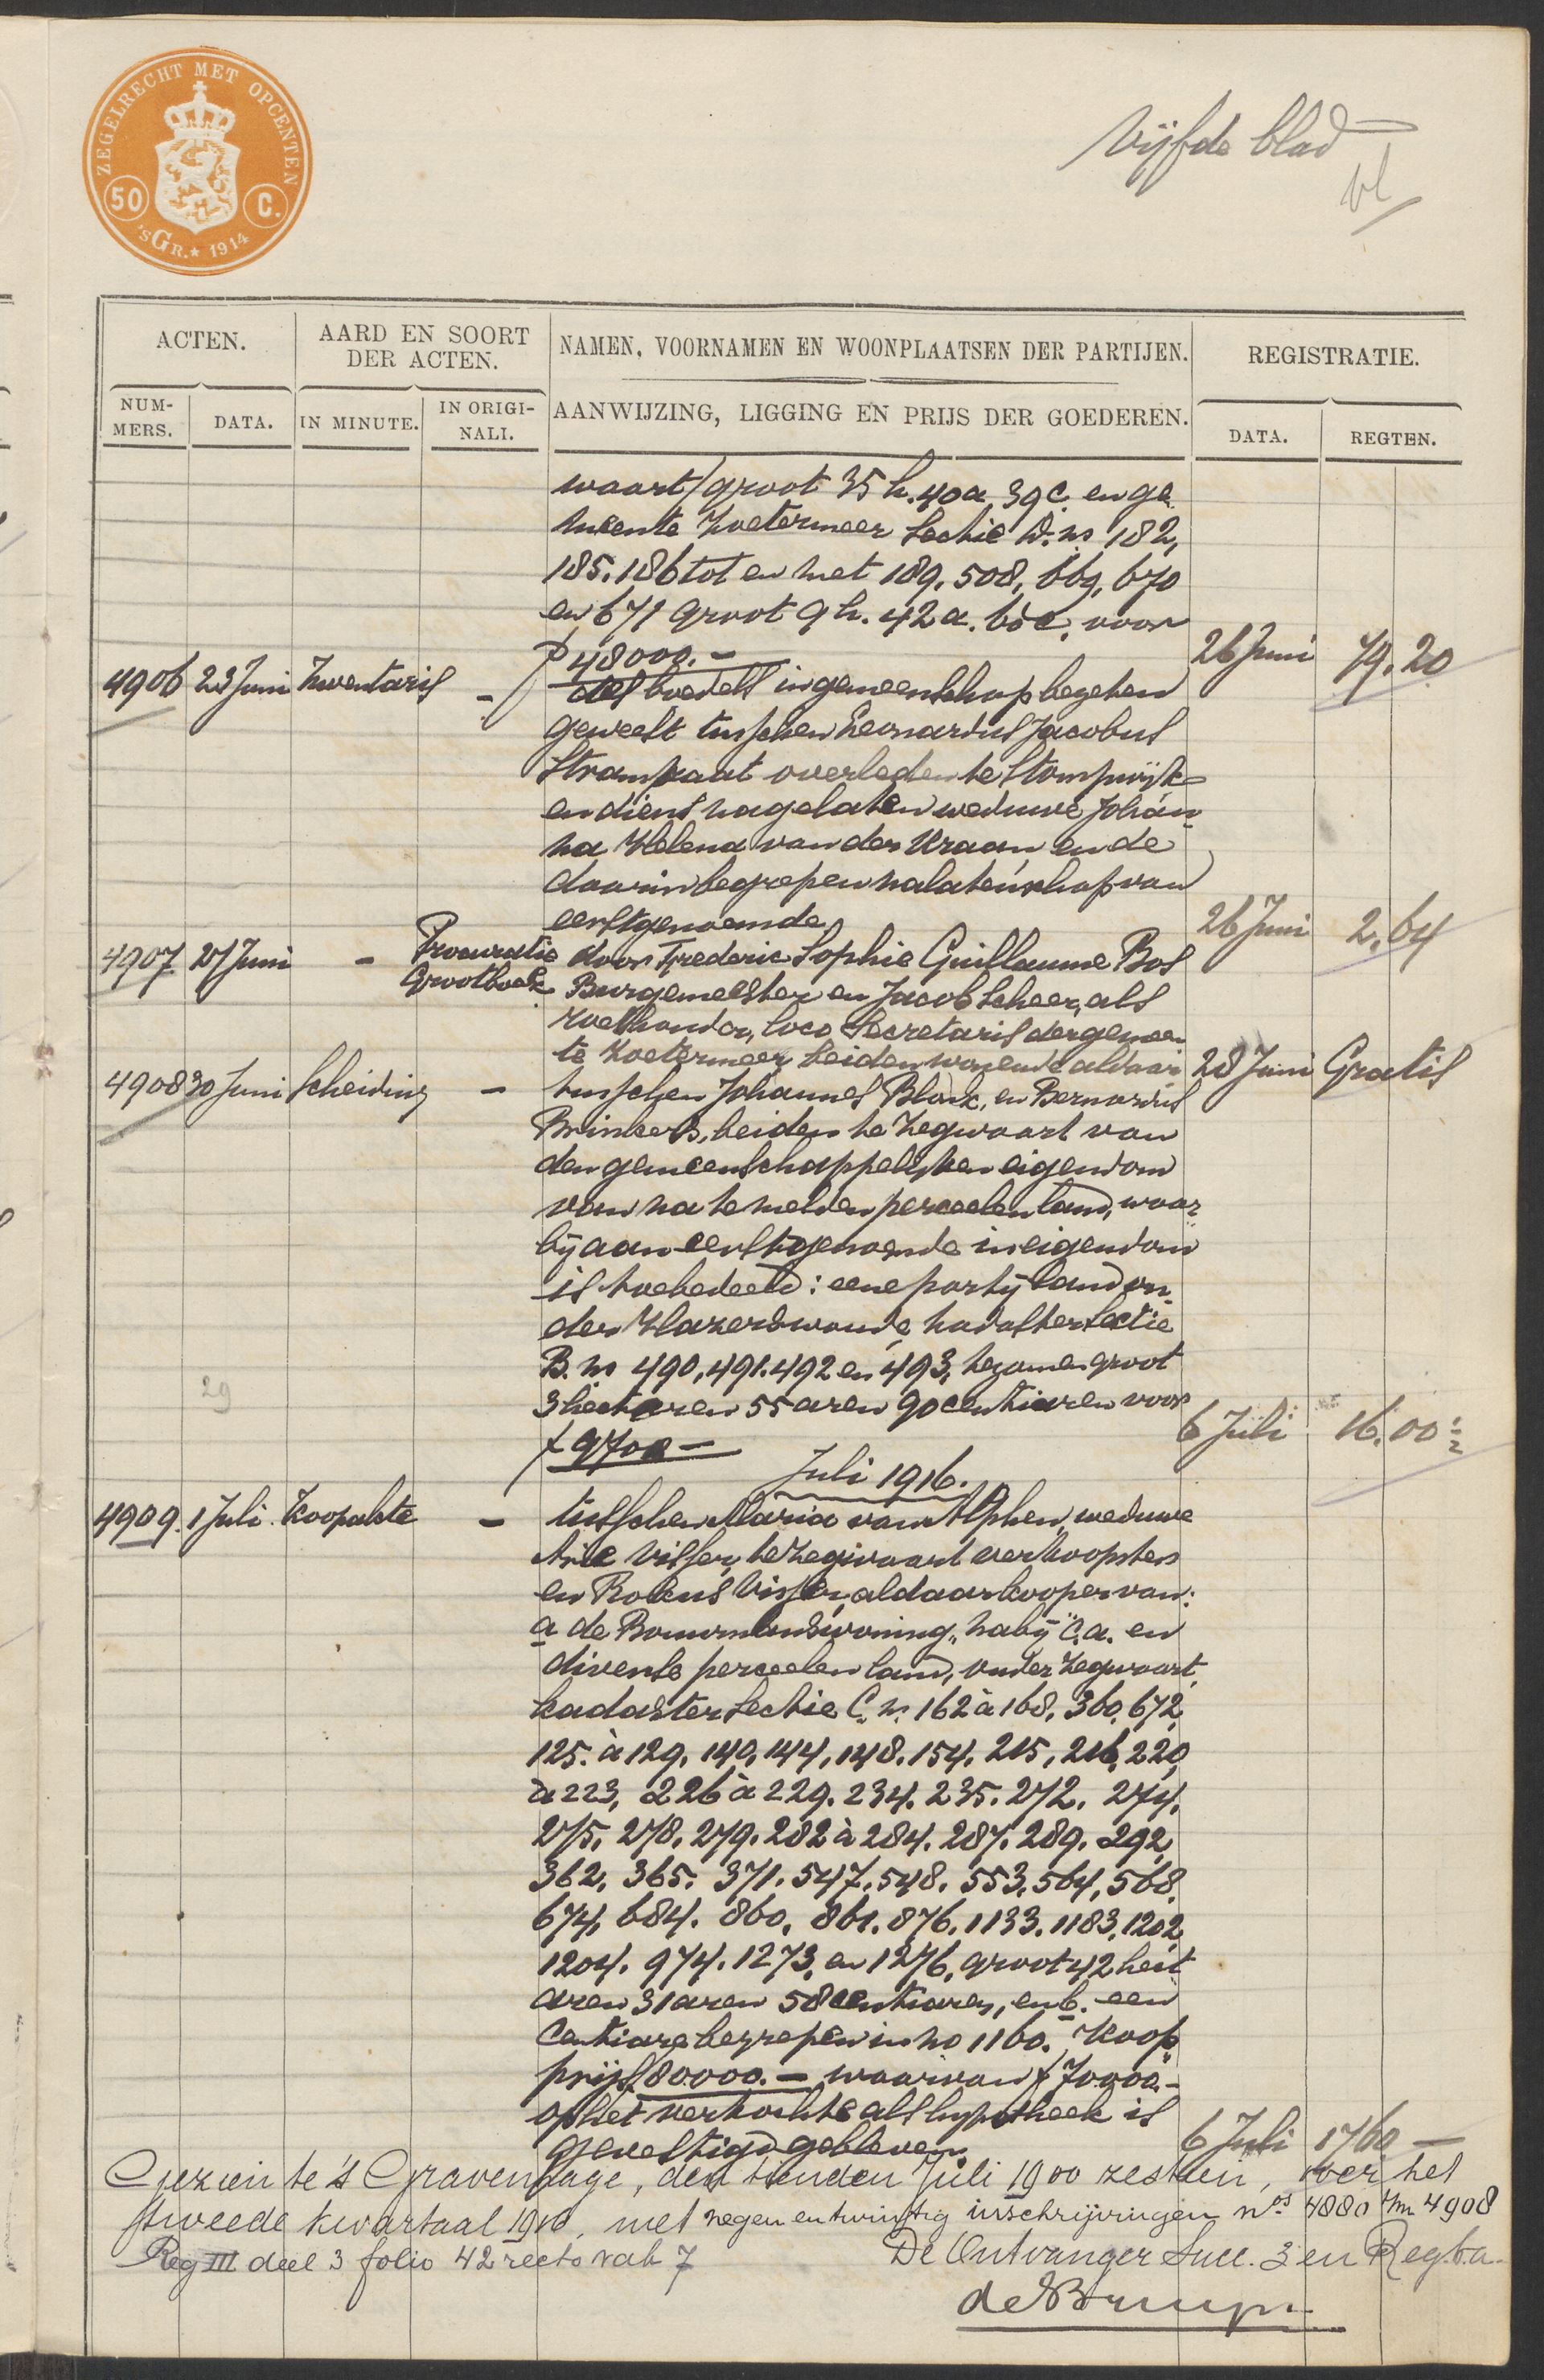 ZEGELRECHT MET OPCENTEN
50 C.
'S GR. * 1914
Vijfde blad
ACTEN.
AARD EN SOORT
DER ACTEN.
NAMEN, VOORNAMEN EN WOONPLAATSEN DER PARTIJEN.
REGISTRATIE.
NUM-
MERS.
DATA.
IN MINUTE.
IN ORIGI-
NALI.
AANWIJZING, LIGGING EN PRIJS DER GOEDEREN.
DATA.
REGTEN.
waart/groot 35 h. 40 a. 39 c. en ge-
meente Zoetermeer Sectie D. no 182,
185. 186 tot en met 189. 508, 669, 670
en 671 groot 9 h. 42 a. 60 c. voor
f 48000.- 26 Juni 79.20
4906 23 Juni Inventaris - des boedels in gemeenschap bezeten
geweest tusschen Leonardus Jacobus
Strampaat overleden te Stompwijk
en diens nagelaten weduwe Johan-
na Helena van der Kraan, en de
daarin begrepen nalatenschap van
eerstgenoemde 26 Juni 2,64
4907 27 Juni - Procuratie door Frederic Sophie Guillaume Bos
Grootboek Burgemeester en Jacob Scheer, als
wethouder, loco Secretaris der gemeen
te Zoetermeer, beiden wonende aldaar 28 Juni Gratis
4908 30 Juni Scheiding - tusschen Johannes Blonk, en Bernardus
Brinkers, beiden te Zegwaart van
den gemeenschappelijken eigendom
van na te melden perceelen land, waar-
bij aan eerstgenoemde in eigendom
is toebedeeld: eene partij land on-
der Hazerswoude, kadaster Sectie
B. no 490, 491. 492 en 493, tezamen groot
29
3 hectaren 55 aren 90 centiaren voor
f 9700 - 6 Juli 16.00½
Juli 1916.
4909. 1 Juli. Koopakte - tusschen Maria van Alphen, weduwe
Arie Visser, te Zegwaart verkoopster
en Rokus Visser, aldaar kooper van:
a de Bouwmanswoning "nabij" c.a. en
diverse perceelen land, onder Zegwaart,
kadaster Sectie C. n. 162 à 168, 360, 672,
125. à 129, 140, 144, 148. 154. 215, 216, 220
à 223, 226 à 229. 234. 235. 272. 274.
275. 278. 279. 282 à 284. 287. 289. 292,
362, 365. 371. 547. 548. 553, 564, 568,
674, 684. 860, 861. 876. 1133. 1183, 1202,
1204. 974. 1273, en 1276, groot 42 hect
aren 31 aren 58 centiaren, en b. een
Centiare begrepen in no 1160. Koop-
prijs f 80000.- waarvan f 70.000.-
op het verkochte als hypotheek is
gevestigd gebleven. 6 Juli 1760 -
Gezien te 's Gravenhage, den tienden Juli 1900 zestien, over het
tweede kwartaal 1916, met negen en twintig inschrijvingen nos 4880 t/m 4908
Reg III deel 3 folio 42 recto vak 7 De Ontvanger Succ. 3 en Reg. b.a.